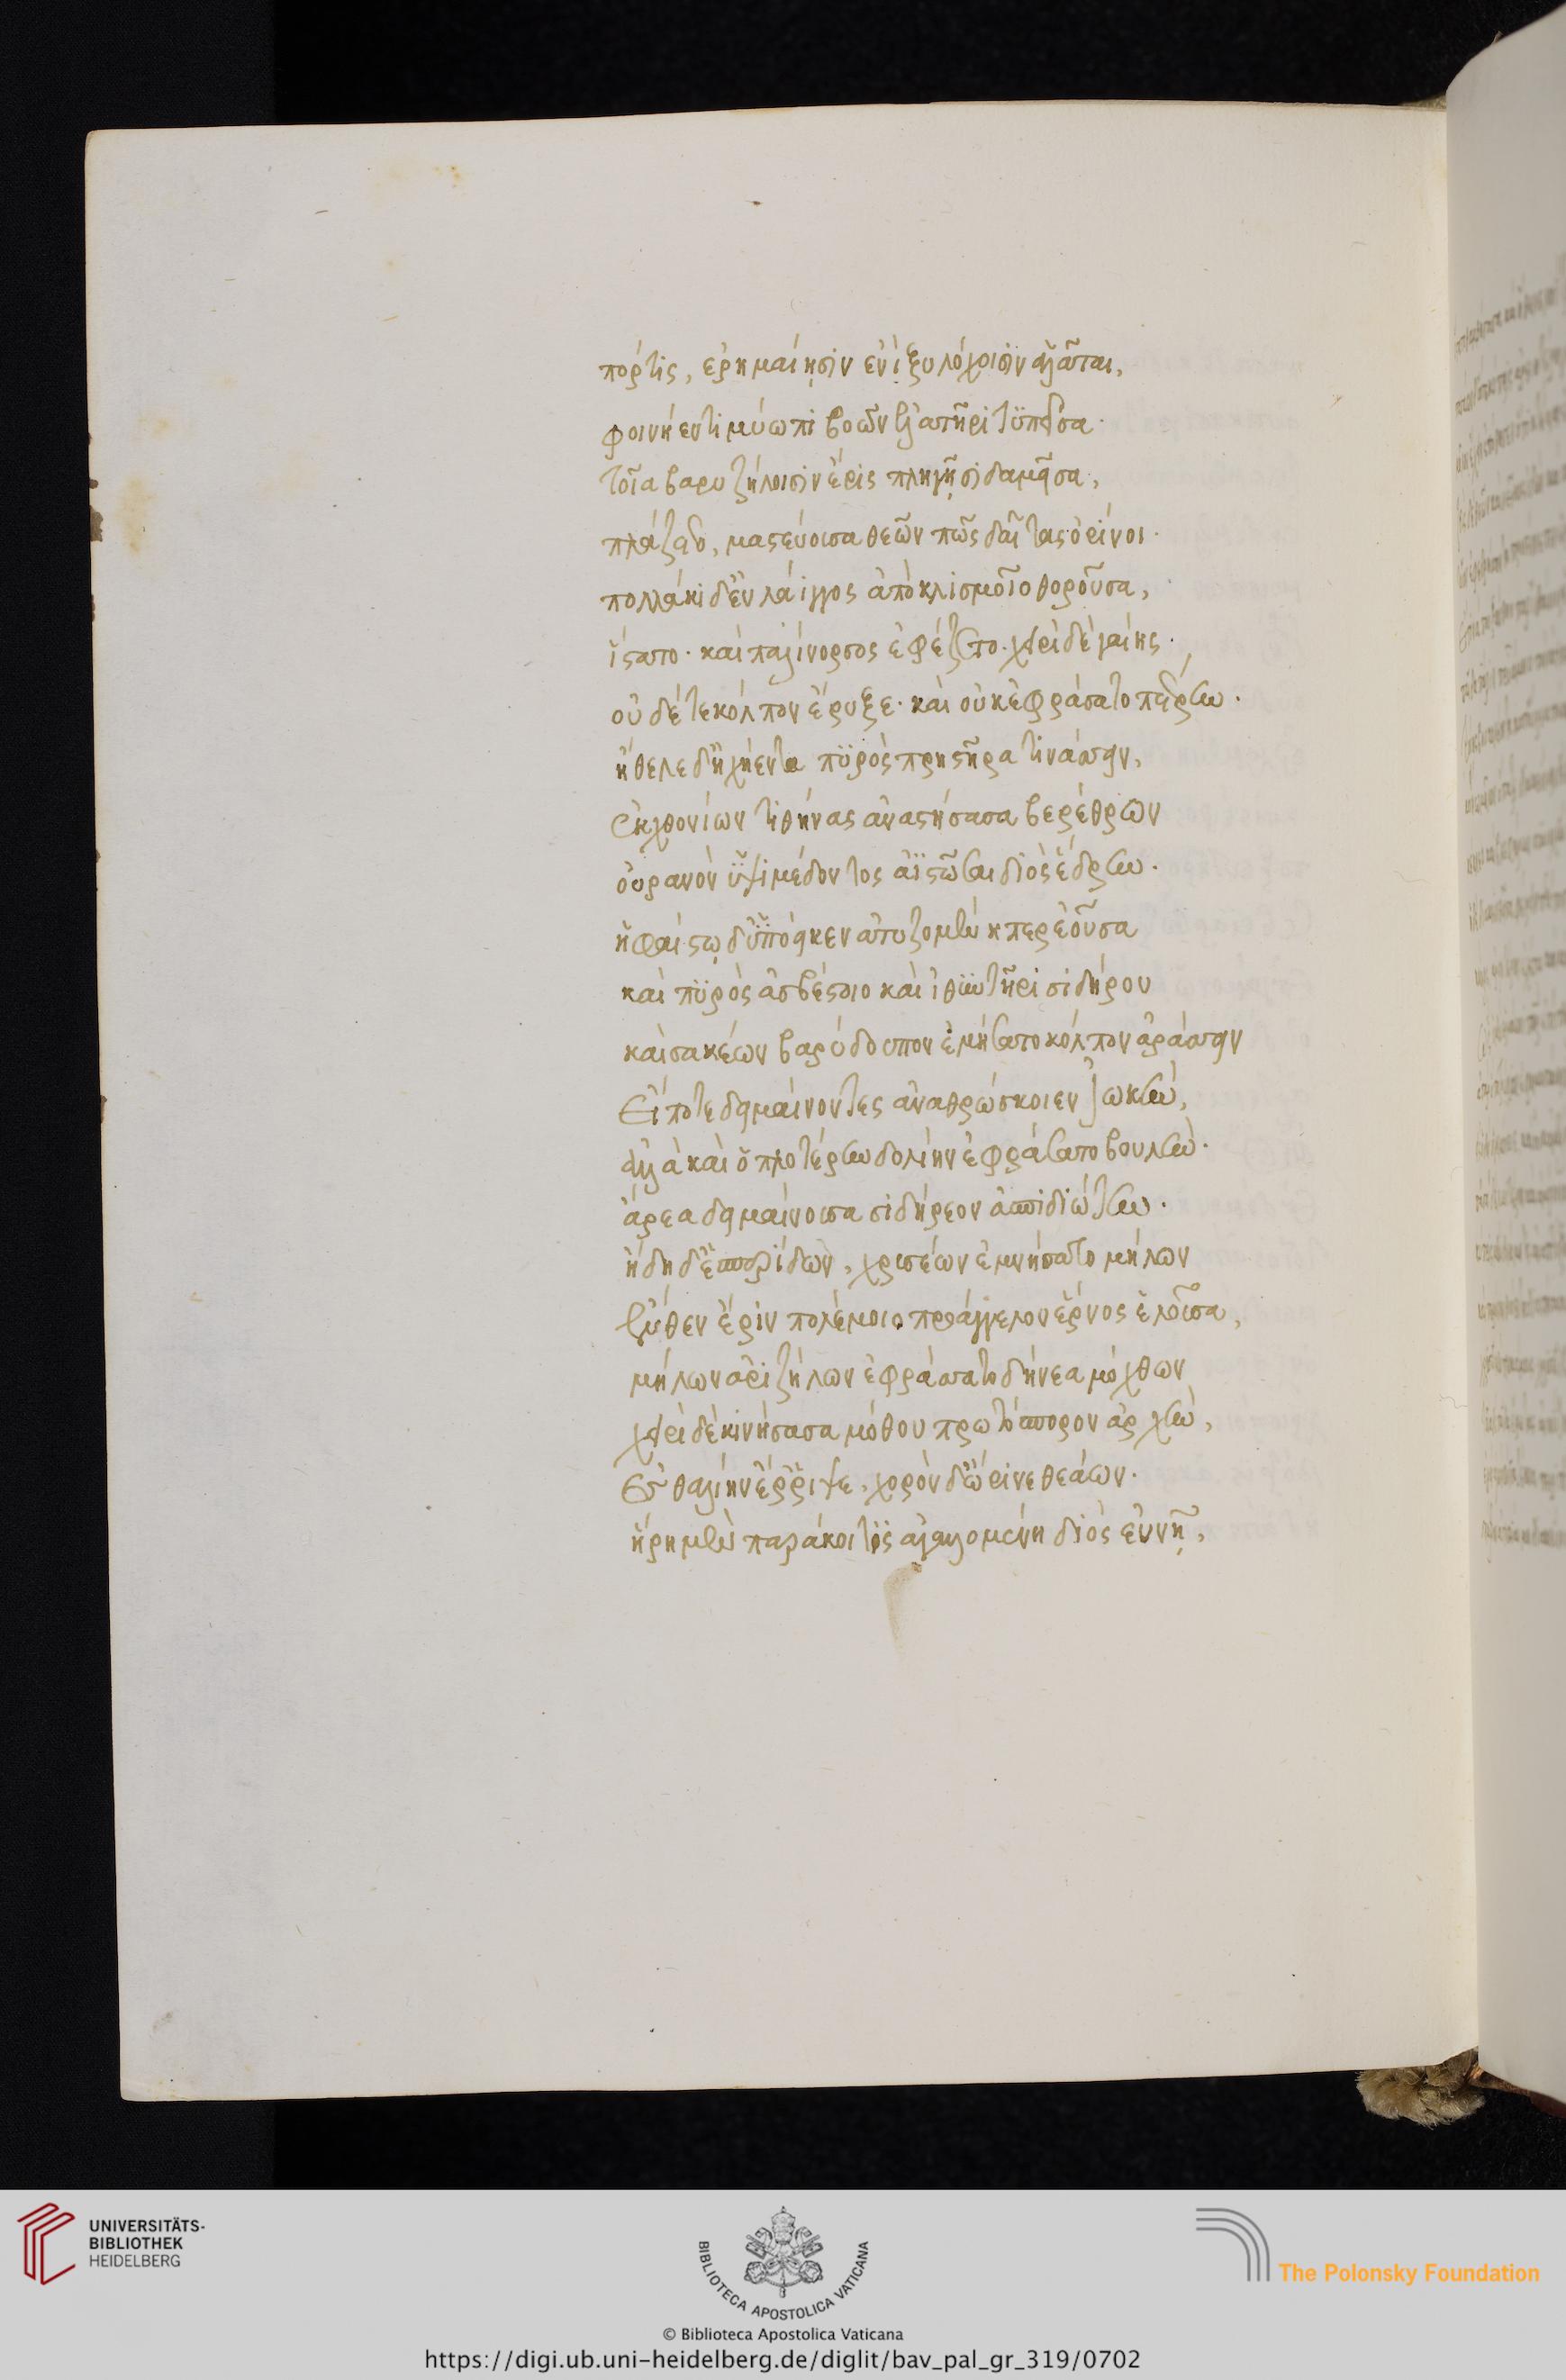 πόρτις, ἐρημαίῃσιν ἐνὶ ξυλόχοισιν ἀλᾶται,
φοινήεντι μύωπι βοῶν ἐλατῆρι τϋπεῖσα·
τοῖα βαρυζήλοισιν ἔρις πληγῇσι δαμεῖσα,
πλάζετο, μαστεύουσα θεῶν πῶς δαῖτας ὀρίνοι·
πολλάκι δ' ἐν λάιγγος ἀπὸ κλισμοῖο θοροῦσα,
ἵστατο· καὶ παλίνορσος ἐφέζετο· χειρὶ δὲ γαίης·
οὐδέ τε κόλπον ἔρυξε· καὶ οὐκ ἐφράσατο πέτρην·
ἤθελε δ' ἠχήεντα πϋρὸς πρηστῆρα τινάσσειν,
ἐκ χθονίων τιθήνας ἀναστήσασα βερέθρων
οὐρανὸν ὑψιμέδοντος ἀϊστῶσαι διὸς ἕδρην·
ἡφαίστῳ δ' ὑπόεικεν ἀτυζομένη περ ἐοῦσα
καὶ πϋρὸς ἀσβέστοιο καὶ ἰθυντῆρι σιδήρου
καὶ σακέων βαρύδουπον ἐμήσατο κόλπον ἀράσσειν
εἴποτε δειμαίνοντες ἀναθρώσκοιεν ἰωκήν,
ἀλλὰ καὶ ὁπλοτέρην δολίην ἐφράσατο βουλήν·
ἄρεα δειμαίνουσα σιδήρεον ἀσπιδιώτην·
ἤδη δ' ἑσπερίδων, χρυσέων ἐμνήσατο μήλων
ἔνθεν ἔριν πολέμοιο προάγγελον ἔρνος ἑλοῦσα,
μήλων ἀριζήλων ἐφράσσατο δήνεα μόχθων
χειρὶ δὲ κινήσασα μόθου πρωτόσπορον ἀρχήν,
ἐς θαλίην ἔρριψε, χορὸν δ' ὤρινε θεάων·
ἥρη μὲν παράκοιτϊς ἀγαλλομένη διὸς εὐνῇ,
UNIVERSITÄTS-
BIBLIOTHEK
HEIDELBERG
BIBLIOTECA APOSTOLICA VATICANA
The Polonsky Foundation
© Biblioteca Apostolica Vaticana
https://digi.ub.uni-heidelberg.de/diglit/bav_pal_gr_319/0702